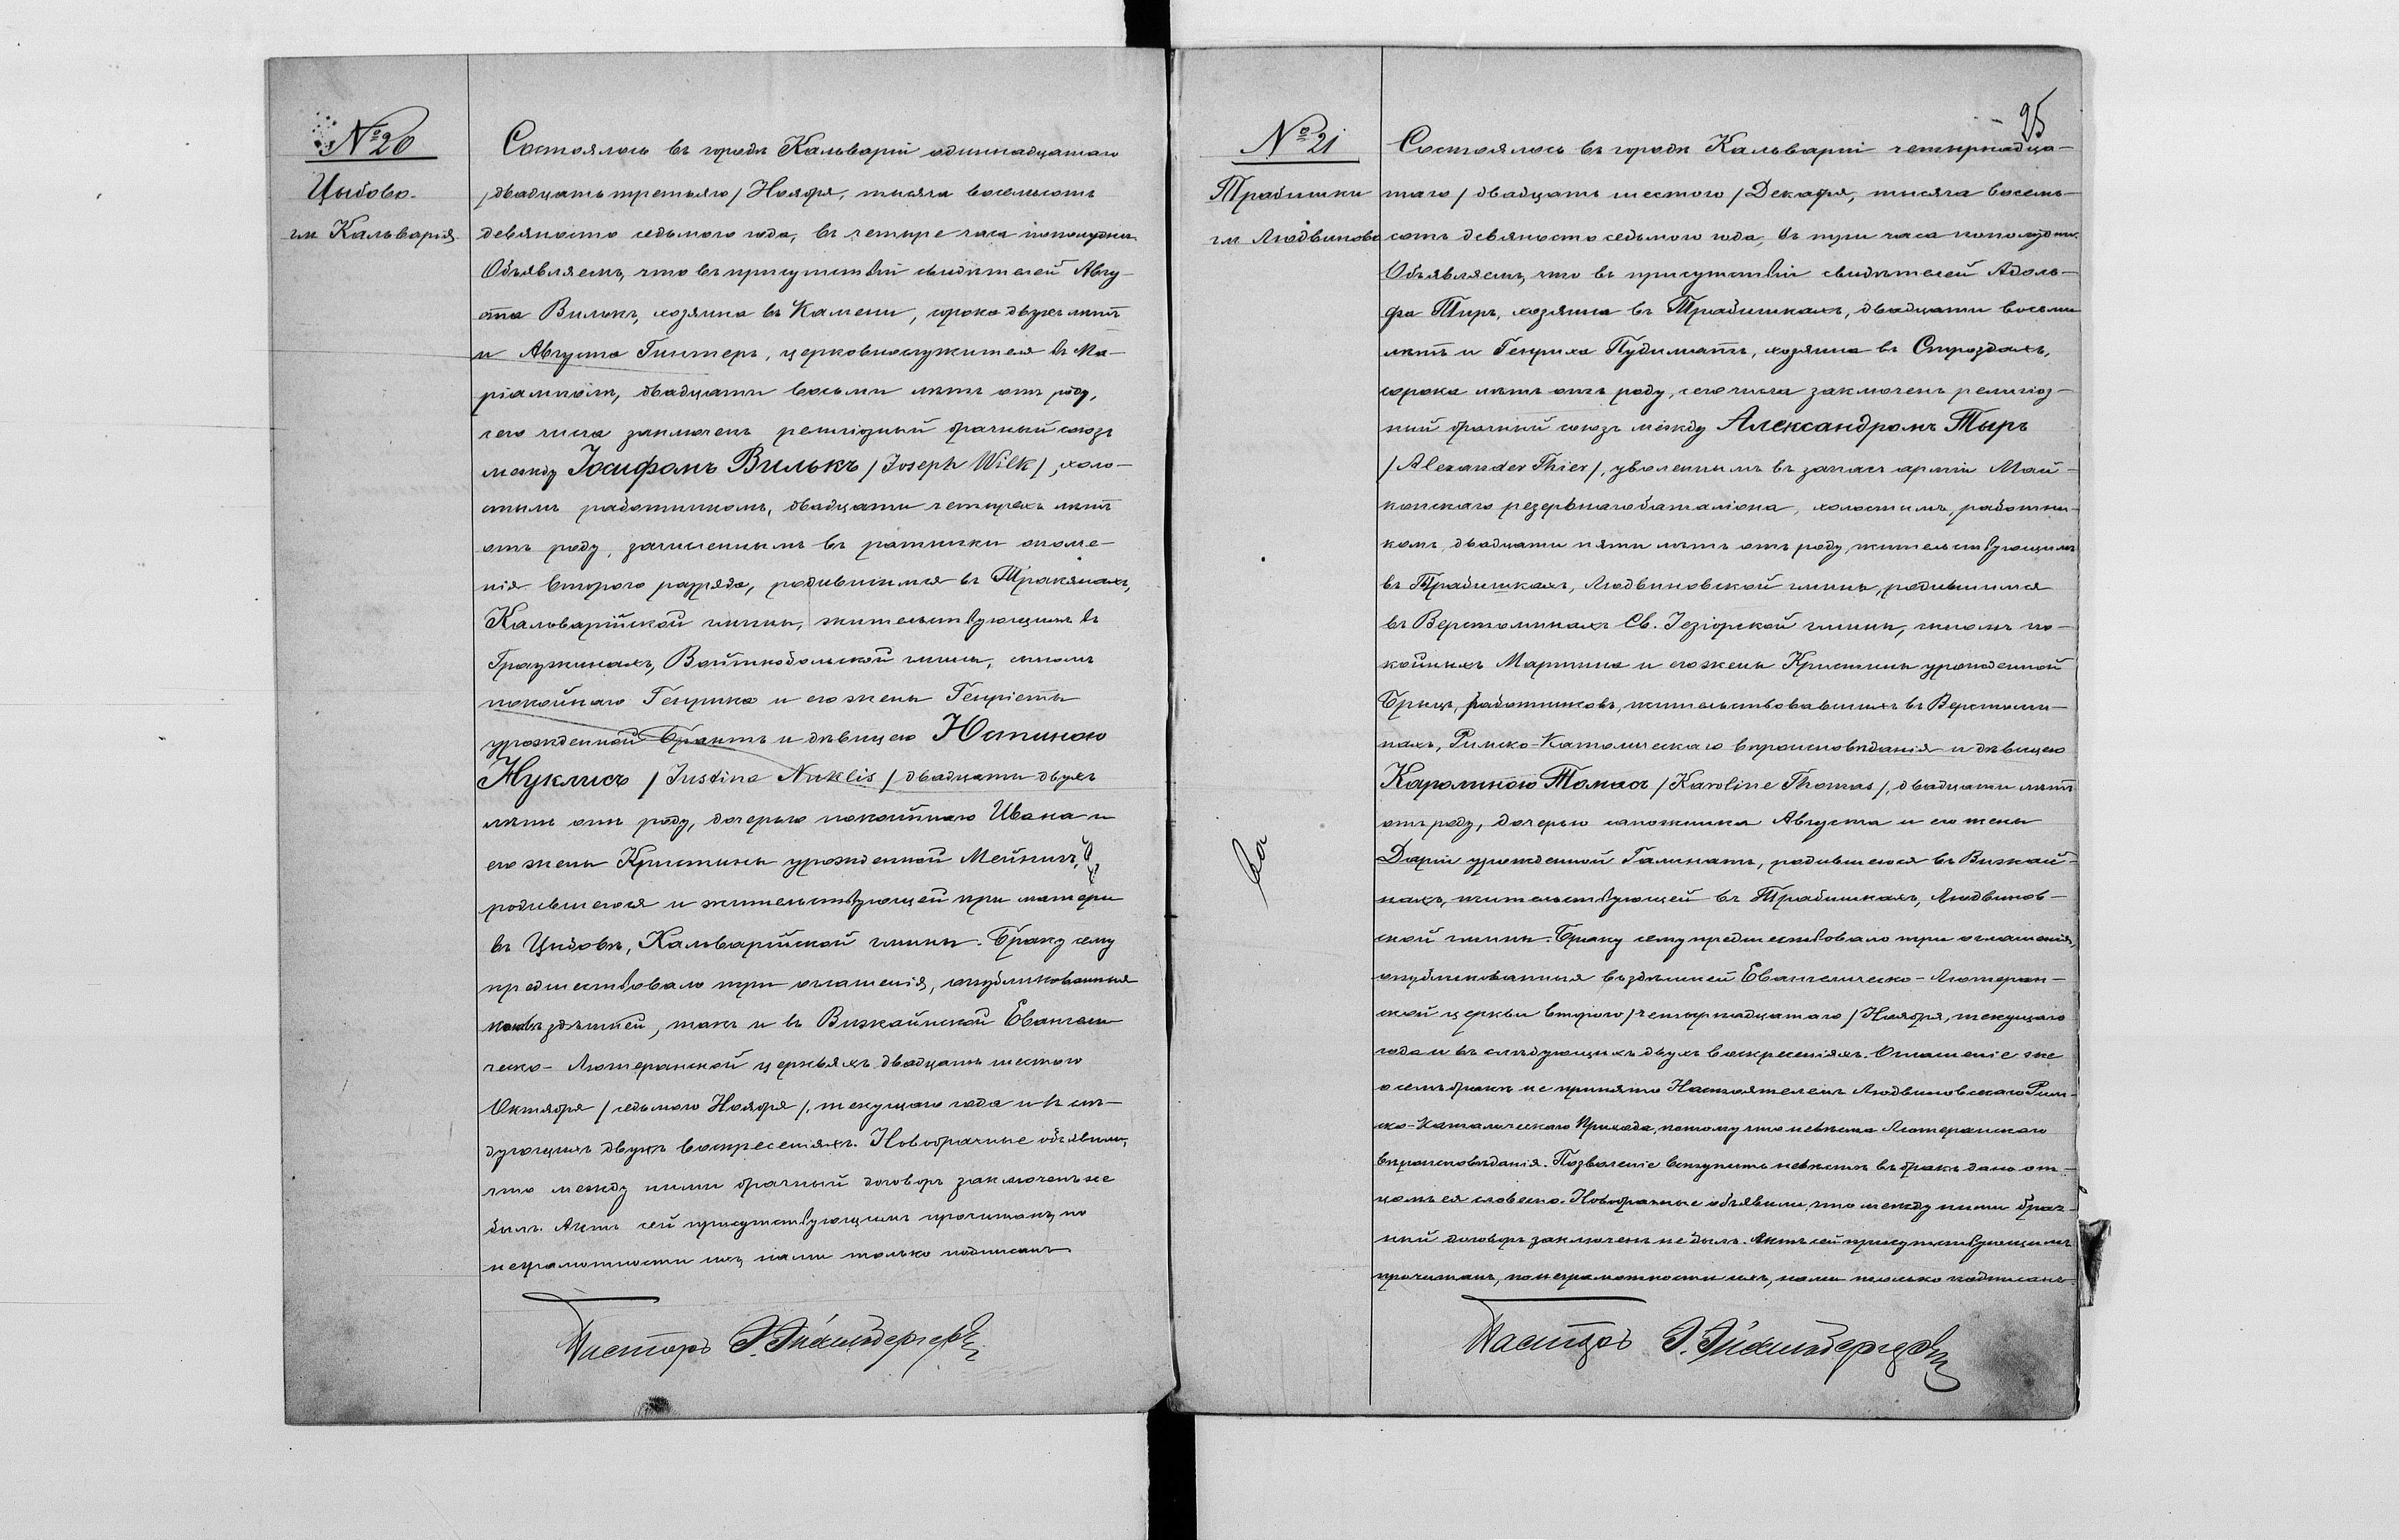 № 20
Цыбово.
гм. Кальварія.
Состоялось въ городѣ Кальваріи одиннадцатаго
/двадцать третьяго/ Ноября, тысяча восемьсотъ
девяносто седьмого года, въ четыре часа пополудни.
Объявляемъ, что въ присутствіи свидѣтелей Авгу-
ста Вилькъ, хозяина въ Камени, сорока двухъ лѣтъ
и Августа Гинтеръ, церковнослужителя въ Ма-
ріамполѣ, двадцати восьми лѣтъ отъ роду,
сего числа заключенъ религіозный брачный союзъ
между Іосифомъ Вилькъ /Joseph Wilk/, холо-
стымъ работникомъ, двадцати четырехъ лѣтъ
отъ роду, зачисленнымъ въ ратники ополче-
нія второго разряда, родившимся въ Тракянахъ,
Кальварійской гмины, жительствующимъ въ
Гражинахъ, Войткобольской гмины, сыномъ
покойнаго Генрика и его жены Генріеты
урожденной Брантъ и дѣвицею Юстиною
Нуклисъ /Justine Nuklis/ двадцати двухъ
лѣтъ отъ роду, дочерью покойнаго Ивана и
его жены Кристины урожденной Мейнитъ,
родившеюся и жительствующей при матери
въ Цыбовѣ, Кальварійской гмины. Браку сему
предшествовало три оглашенія, опубликованныя
какъ въ здѣшней, такъ и въ Вижайнской Евангели
ческо-Лютеранской церквяхъ двадцать шестого
Октября /седьмого Ноября/, текущаго года и въ слѣ-
дующихъ двухъ воскресеніяхъ. Новобрачные объявили,
что между ними брачный договоръ заключенъ не
былъ. Актъ сей присутствующимъ прочитанъ, по
неграмотности ихъ, нами только подписанъ
Пасторъ
95
№ 21
Трабишки
гм. Людвиново
Состоялось въ городѣ Кальваріи четырнадца-
таго /двадцать шестого/ Декабря, тысяча восемь-
сотъ девяносто седьмого года, въ три часа пополудни.
Объявляемъ, что въ присутствіи свидѣтелей Адоль-
фа Тиръ, хозяина въ Трабишкахъ, двадцати восьми
лѣтъ и Генриха Пудиматъ, хозяина въ Строздахъ,
сорока лѣтъ отъ роду, сего числа заключенъ религіоз-
ный брачный союзъ между Александромъ Тыръ
/Alexander Thier/, уволеннымъ въ запасъ арміи Май-
копскаго резервнаго баталіона, холостымъ, работни-
комъ, двадцати пяти лѣтъ отъ роду, жительствующимъ
въ Трабишкахъ, Людвиновской гмины, родившимся
въ Верстоминахъ Св. Іезіорской гмины, сыномъ по-
койныхъ Мартина и его жены Кристины урожденной
работниковъ, жительствовавшихъ въ Верстоми-
нахъ, Римско-Католическаго вѣроисповѣданія и дѣвицею
Каролиною Томасъ /Karoline Thomas/, двадцати лѣтъ
отъ роду, дочерью сапожника Августа и его жены
Даріи урожденной Галинатъ, родившеюся въ Вижай-
нахъ, жительствующей въ Трабишкахъ, Людвинов-
ской гмины. Браку сему предшествовало три оглашенія,
опубликованныя въ здѣшней Евангелическо-Лютеран-
ской церкви второго /четырнадцатаго/ Ноября, текущаго
года и въ слѣдующихъ двухъ воскресеніяхъ. Оглашеніе же
о семъ бракѣ не принято Настоятелемъ Людвиновскаго Рим-
ско-Католическаго Прихода, потому что невѣста Лютеранскаго
вѣроисповѣданія. Позволеніе вступить невѣстѣ въ бракъ дано от-
цомъ ея словесно. Новобрачные объявили, что между ними брач-
ный договоръ заключенъ не былъ. Актъ сей присутствующимъ
прочитанъ, по неграмотности ихъ, нами только подписанъ.
Пасторъ